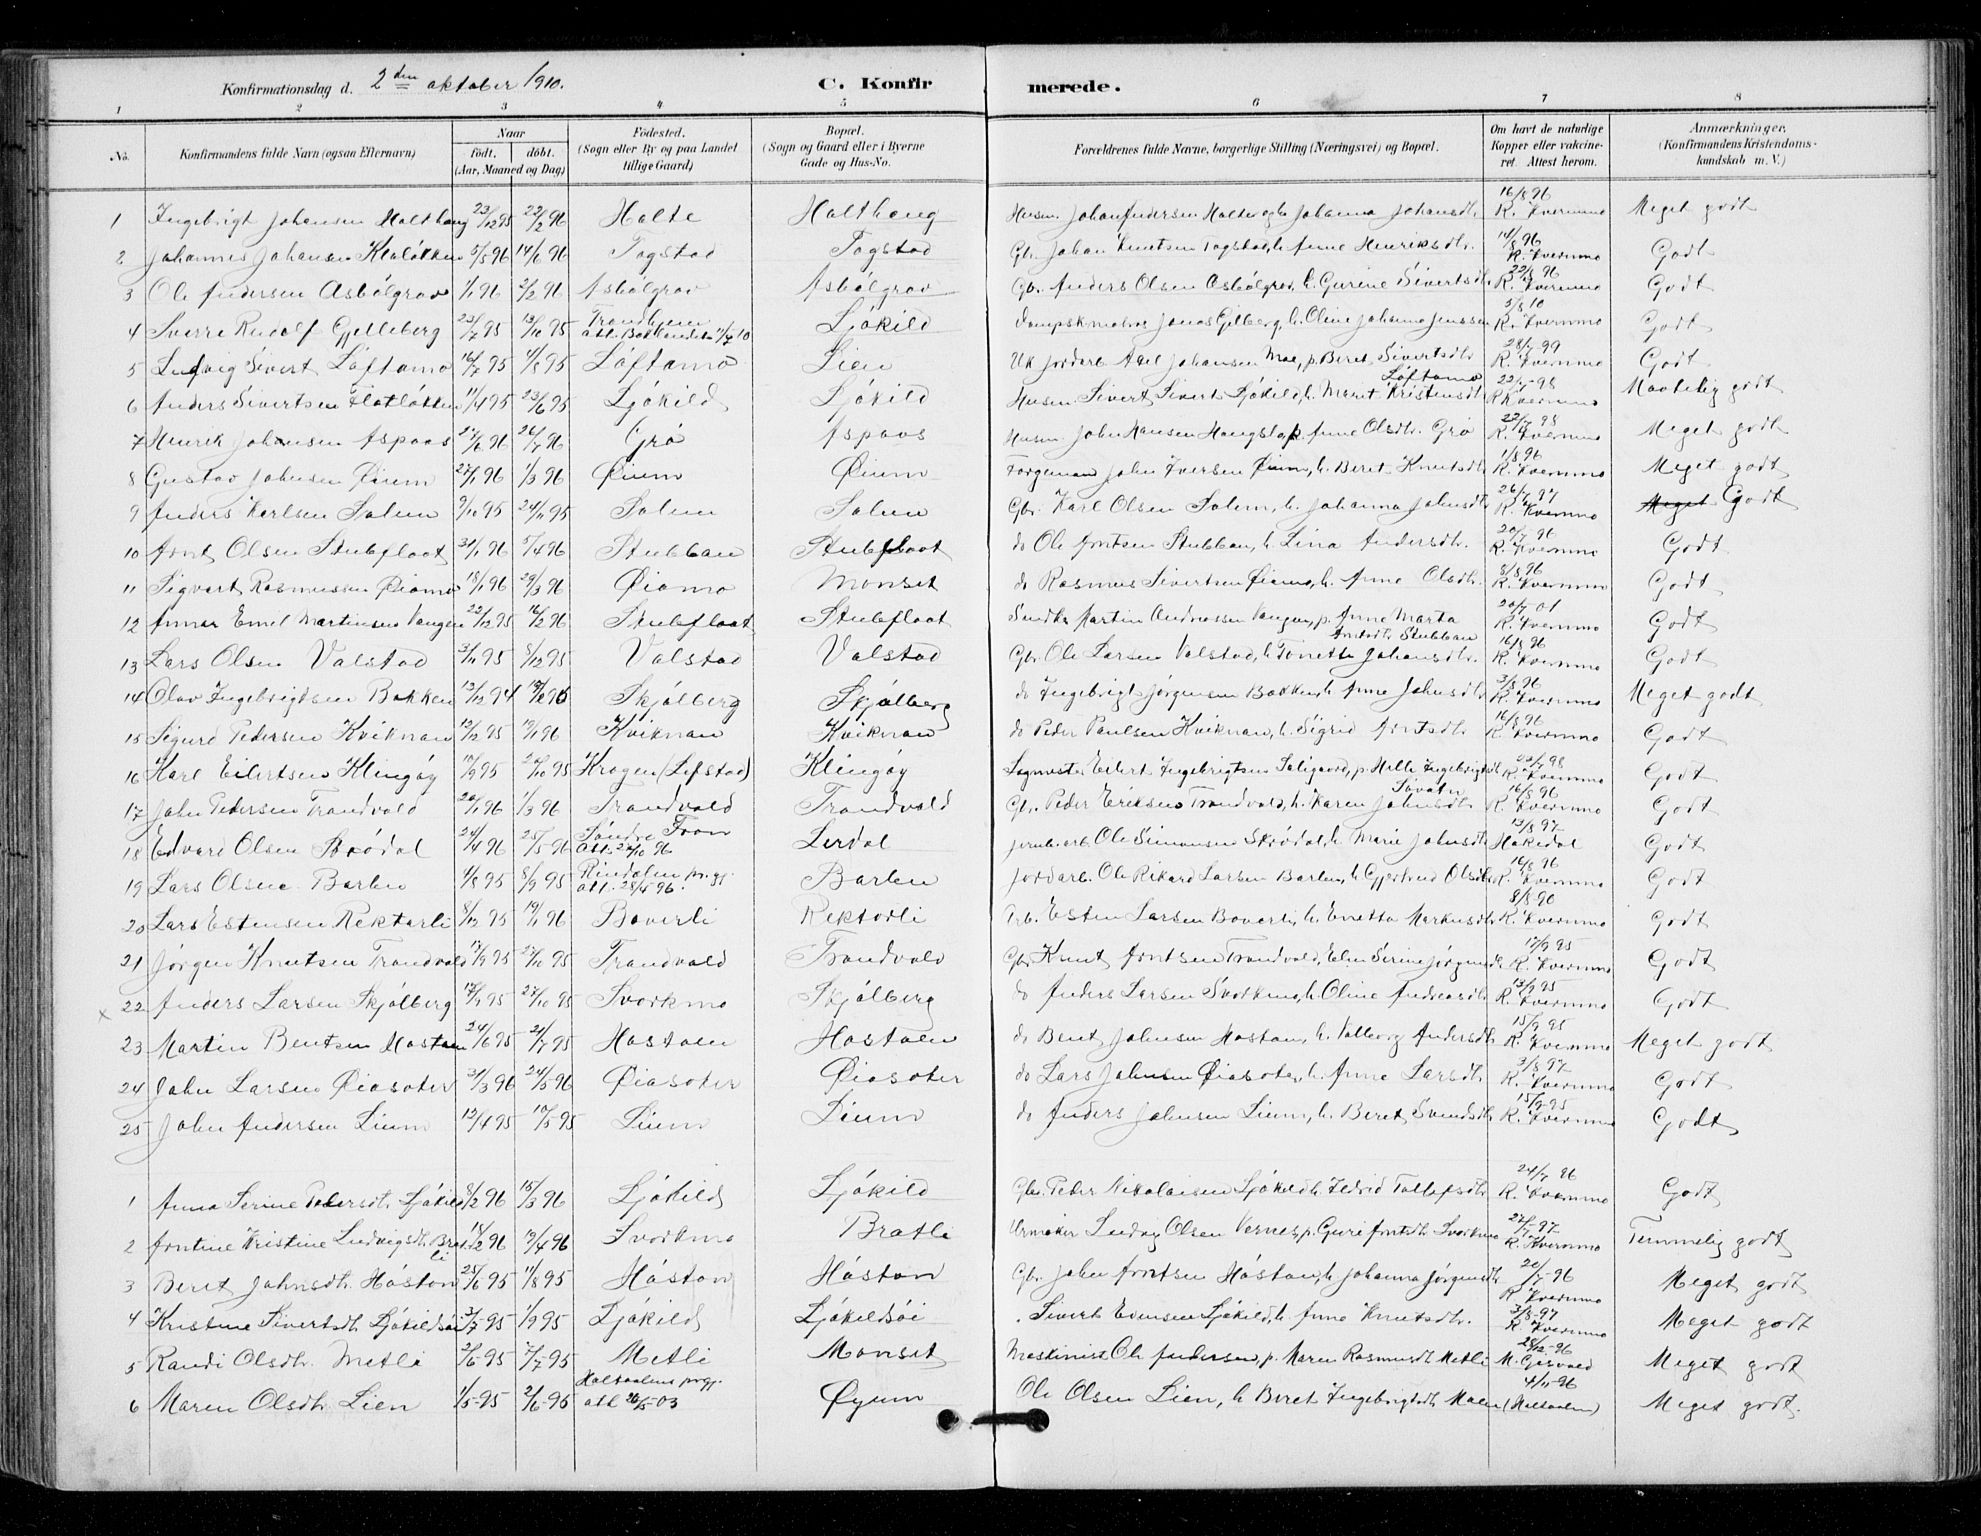 Konfirmationsdag d. 2den oktober 1910. C. Konfirmerede.
1 2 3 4 5 6 7 8
No. Konfirmandens fulde Navn (ogsaa Efternavn) Naar født, døbt. (Aar, Maaned og Dag) Fødested. (Sogn eller By og paa Landet tillige Gaard) Bopæl. (Sogn og Gaard eller i Byerne Gade og Hus-No. Forældrenes fulde Navne, borgerlige Stilling (Næringsvei) og Bopæl. Om havt de naturlige Kopper eller vakcineret. Attest herom. Anmærkninger. (Konfirmandens Kristendomskundskab m. V.)
1 Ingebrigt Johansen Halthaug 23/12 95 22/2 96 Halte Halthaug Husm. Johan Andersen Halte og h. Johanna Johansdtr. 16/8 96 R. Kvernmo Meget godt
2 Johannes Johansen 5/5 96 14/6 96 Togstad Togstad Gbr. Johan Knutsen Togstad, h. Anne Henriksdtr. 14/8 96 R. Kvernmo Godt
3 Ole Andersen Asbølgrav 1/1 96 2/2 96 Asbølgrav Asbølgrav Gbr. Anders Olsen Asbølgrav, h. Gurine Sivertsdtr. 22/8 96 R. Kvernmo Godt
4 Sverre Rudolf Gjelleberg 23/7 95 13/10 95 Trondhjem att. Bakklandet 11/7 10 Ljøkild Jonas Gilberg, h. Oline Johanna Jenssen 5/8 10 R. Kvernmo Godt
5 Ludvig Sivert Løftamo 16/7 95 4/8 95 Løftamo Lien Uk. Jordarb. Axel Johansen Moe, p. Beret Sivertsdtr. Løftamo 28/7 99 R. Kvernmo Godt
6 Anders Sivertsen Flatløkken 11/4 95 23/6 95 Ljøkild Ljøkild Husm. Sivert Siverts. Ljøkild, h. Marit Kristensdtr. 22/7 98 R. Kvernmo Maadelig godt
7 Henrik Johansen Aspaas 27/6 96 26/7 96 Grø Aspaas Husm. John Hansen, p. Anne Olsdtr. Grø 22/7 98 R. Kvernmo Meget godt
8 Gustav Johnsen Øium 27/1 96 1/3 96 Øium Øium John Iversen Øium, h. Beret Knutsdtr. 1/8 96 R. Kvernmo Meget godt
9 Anders Karlsen Solem 9/10 95 24/11 95 Solem Solem Gbr. Karl Olsen Solem, h. Johanna Johnsdtr. 26/7 97 R. Kvernmo Meget Godt
10 Arnt Olsen Stubfloat 31/1 96 5/4 96 Stubban Stubfloat do Ole Arntsen Stubban, h. Lina Andersdtr. 20/7 96 R. Kvernmo Godt
11 Sigvart Rasmussen Øiamo 18/1 96 29/3 96 Øiamo Monset do Rasmus Sivertsen Øiamo, h. Anne Olsdtr. 8/8 96 R. Kvernmo Godt
12 Annar Emil Martinsen Vangen 22/12 95 16/2 96 Stubfloat Stubfloat Martin Andreassen Vangen, p. Anne Marta Arntsdtr. Stubban 20/7 01 R. Kvernmo Godt
13 Lars Olsen Valstad 3/11 95 8/12 95 Valstad Valstad Gbr. Ole Larsen Valstad, h. Tonette Johansdtr. 16/8 96 R. Kvernmo Godt
14 Olav Ingebrigtsen Bakken 13/12 94 Skjølberg Skjølberg do Ingebrigt Jørgensen Bakken, h. Anne Johnsdtr. 3/8 96 R. Kvernmo Meget godt
15 Sigurd Pedersen Kviknan 12/12 95 19/1 96 Kviknan Kviknan do Peder Paulsen Kviknan, h. Sigrid Arntsdtr. 16/8 96 R. Kvernmo Godt
16 Karl Eilertsen Klingøy 10/9 95 20/10 95 Krogen (Lefstad) Klingøy Eilert Ingebrigtsen Saligaard, p. Helle Ingebrigtsdtr. 22/7 98 R. Kvernmo Godt
17 John Pedersen Trandvold 20/1 96 1/3 96 Trandvold Trandvold Gbr. Peder Eriksen Trandvold, h. Karen Johnsdtr. 16/8 96 R. Kvernmo Godt
18 Edvard Olsen Skrødal 24/4 96 25/5 96 Søndre Fron Att. 24/10 96 Lerdal Jernb. arb. Ole Simonsen Skrødal, h. Marie Johnsdtr. 13/8 97 Hakedal Godt
19 Lars Olsen Barlen 4/8 95 8/9 95 Rindalen prgj. att. 28/5 96. Barlen Jordarb. Ole Rikard Larsen Barlen, h. Gjertrud Olsdtr. 16/8 96 R. Kvernmo Godt
20 Lars Estensen Rektarli 8/12 95 19/1 96 Boverli Rektorli Arb. Esten Larsen Boverli, h. Enetta Markusdtr. 8/8 96 R. Kvernmo Godt
21 Jørgen Knutsen Trandvold 17/9 95 27/10 95 Trandvold Trandvold Gbr. Knut Arntsen Trandvold, Elen Serine Jørgensdtr. 12/9 95 R. Kvernmo Godt
x 22 Anders Larsen Skjølberg 17/9 95 27/10 95 Svorkmo Skjølberg do Anders Larsen Svorkmo, h. Oline Andreasdtr. 13/9 95 R. Kvernmo Godt
23 Martin Bentsen Hostoen 24/6 95 21/7 95 Hostoen Hostoen do Bent Johnsen Hoston, h. Valborg Andersdtr. 15/9 95 R. Kvernmo Meget godt
24 John Larsen Øiasoter 31/3 96 24/5 96 Øiasoter Øiasoter do Lars Johnsen Øiasoter, h. Anne Larsdtr. 3/8 97 R. Kvernmo Godt
25 John Andersen Lium 12/4 95 19/5 95 Lium Lium do Anders Johnsen Lium, h. Beret Svendsdtr. 15/9 95 R. Kvernmo Godt
1 Anna Serine Pedersdtr. Ljøkild 8/2 96 15/3 96 Ljøkild Ljøkild Gbr. Peder Nikolaisen Ljøkild, h. Ildrid Tollefsdtr. 24/7 96 R. Kvernmo Godt
2 Arntine Kristine Ludvigsdtr. Bratli 18/2 96 19/4 96 Svorkmo Bratli Urmaker Ludvig Olsen Vernes, p. Guri Arntsdtr. Svorkmo 27/7-97 R. Kvernmo Temmelig godt
3 Beret Johnsdtr. Hoston 25/6 95 11/8 95 Høston Høston Gbr. John Arntsen Høston, h. Johanna Jørgensdtr. 20/7-96 R. Kvernmo Meget godt
4 Kristine Sivertsdtr. Ljøkildsøi 3/7-95 1/9 95 Ljøkild Ljøkildsøi Sivert Evensen Ljøkild, h. Anne Knutsdtr. 3/8-97 R. Kvernmo Meget godt
5 Randi Olsdtr. Metli 2/6-95 7/7-95 Metli Monset Maskinist Ole Andersen, p. Maren Rasmusdtr. Metli 28/12-96 M. Gisvold Meget godt
6 Maren Olsdtr. Lien 1/5-95 2/6-95 Haltaalens prgj. att 26/5-03 Øyum Ole Olsen Lien, h. Beret Ingebrigtsdtr. Moen (Haltaalen) 4/11-96 Meget godt.